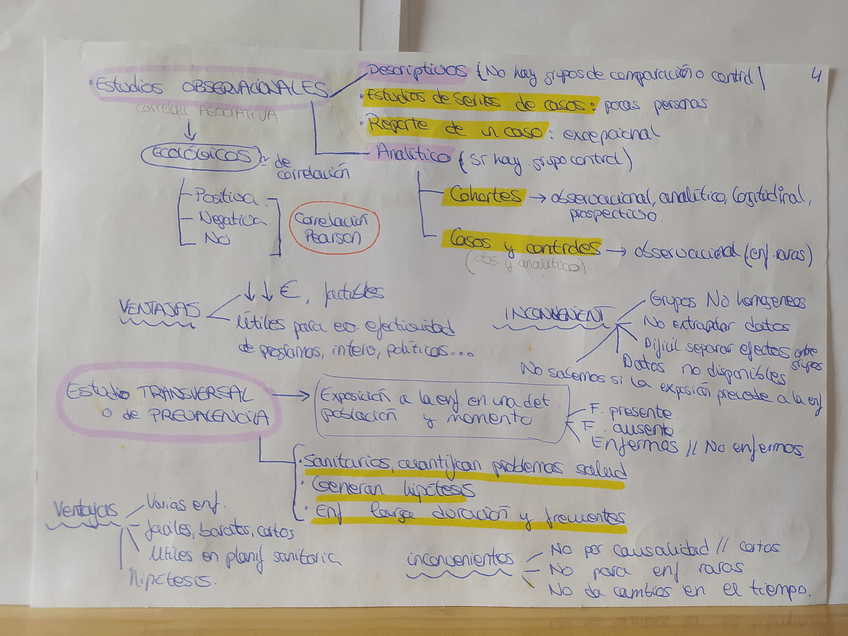 4
· Estudios OBSERVACIONALES
correlac ASOCIATIVA
Descriptivos (No hay grupos de comparación o control)
· Estudios de series de casos: pocas personas
· Reporte de un caso: excepcional
Analítico (sí hay grupo control)
Cohortes → observacional, analítico, longitudinal,
prospectivo
Casos y controles → observacional (enf. raras)
(obs y analítico)
ECOLÓGICOS de
correlación
Positiva
Negativa
No
Correlación
Pearson
VENTAJAS
↓↓ €, factibles
Útiles para ev. efectividad
de programas, interv, políticas...
INCONVENIENT
Grupos No homogeneos
No extrapolar datos
Dificil separar efectos entre
grupos
Datos no disponibles
No sabemos si la exposión precede a la enf
Estudio TRANSVERSAL
o de PREVALENCIA
→ Exposición a la enf en una det
población y momento
F. presente
F. ausente
Enfermos // No enfermos
· Sanitarios, cuantifican problemas salud
· Generan hipótesis
· Enf larga duración y frecuentes
Ventajas
Varias enf.
faciles, baratos, cortos
Útiles en planif sanitaria
Hipótesis.
inconvenientes
No por causalidad // cortos
No para enf raras
No da cambios en el tiempo.